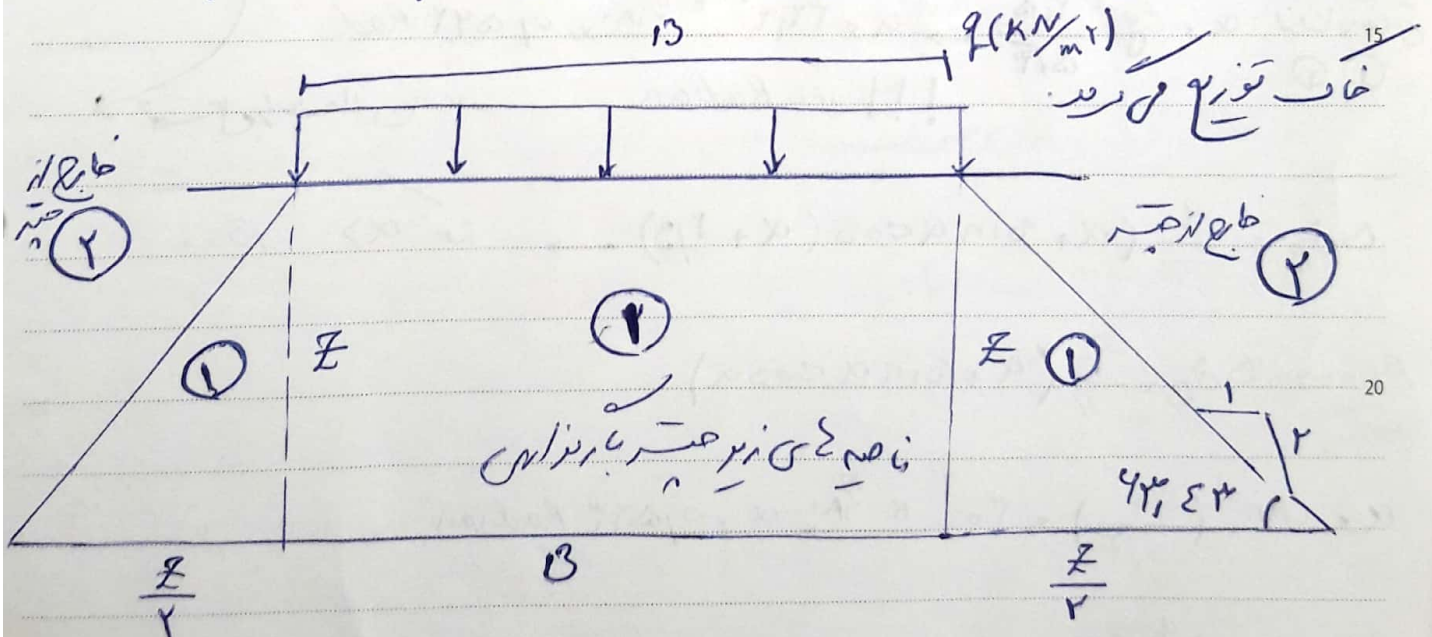 B
q(KN/m۲)
15
خاک توزیع می گردد.
خارج از
چتر
۲
خارج از چتر
۲
۳
۱
Z
Z
۱
20
۱
۲
ناحیه های زیر چتر بارگذاری
۶۳,۴۳
Z/۲
B
Z/۲